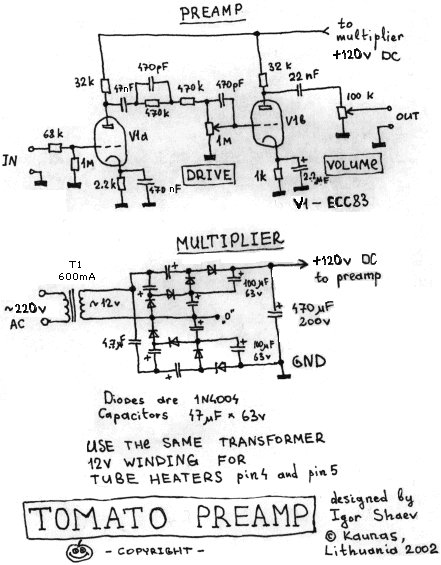 PREAMP
to
multiplier
+120v DC
32k
47nF
470pF
470k
470k
470pF
32k
22nF
100 k
OUT
68k
IN
1M
V1a
1M
V1b
2.2k
470nF
DRIVE
1k
2.2µF
VOLUME
V1 - ECC83
MULTIPLIER
T1
600mA
+120v DC
to preamp
~220v
AC
~12v
100µF
63v
"0"
470µF
200v
4.7µF
100µF
63v
GND
Diodes are 1N4004
Capacitors 47µF × 63v
USE THE SAME TRANSFORMER
12V WINDING FOR
TUBE HEATERS pin4 and pin5
TOMATO PREAMP
- COPYRIGHT -
designed by
Igor Shaev
© Kaunas,
Lithuania 2002